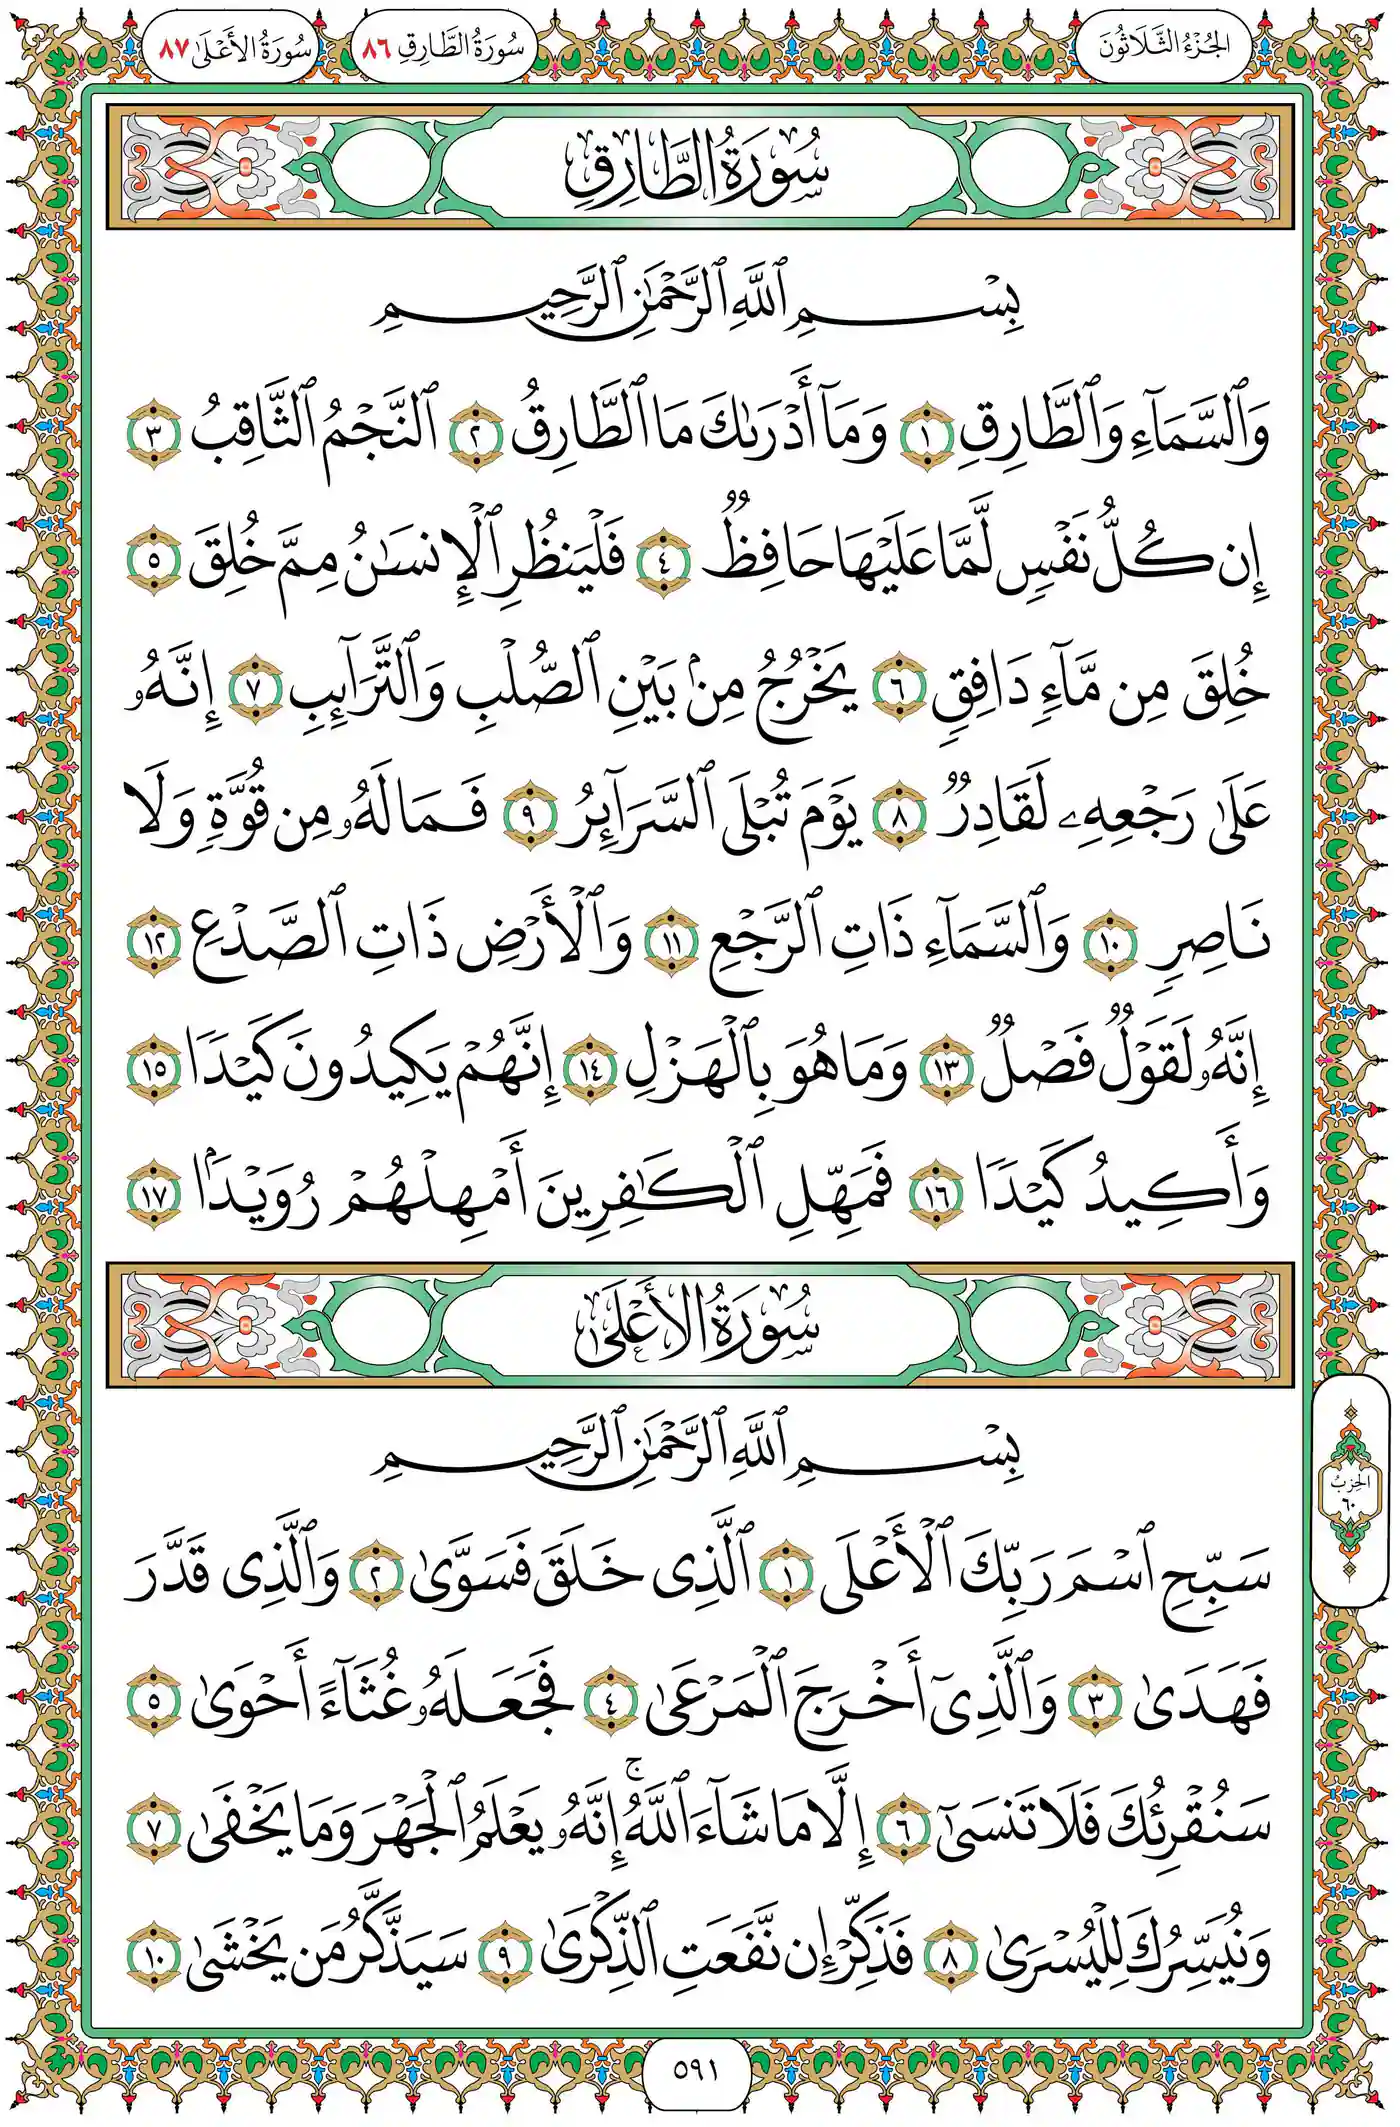 الجُزْءُ الثَّلَاثُونَ سُورَةُ الطَّارِقِ ٨٦ سُورَةُ الأَعْلَىٰ ٨٧
سُورَةُ الطَّارِقِ
بِسْمِ ٱللَّهِ ٱلرَّحْمَٰنِ ٱلرَّحِيمِ
وَٱلسَّمَآءِ وَٱلطَّارِقِ ١ وَمَآ أَدْرَىٰكَ مَا ٱلطَّارِقُ ٢ ٱلنَّجْمُ ٱلثَّاقِبُ ٣
إِن كُلُّ نَفْسٍ لَّمَّا عَلَيْهَا حَافِظٌ ٤ فَلْيَنظُرِ ٱلْإِنسَٰنُ مِمَّ خُلِقَ ٥
خُلِقَ مِن مَّآءٍ دَافِقٍ ٦ يَخْرُجُ مِنۢ بَيْنِ ٱلصُّلْبِ وَٱلتَّرَآئِبِ ٧ إِنَّهُۥ
عَلَىٰ رَجْعِهِۦ لَقَادِرٌ ٨ يَوْمَ تُبْلَى ٱلسَّرَآئِرُ ٩ فَمَا لَهُۥ مِن قُوَّةٍ وَلَا
نَاصِرٍ ١٠ وَٱلسَّمَآءِ ذَاتِ ٱلرَّجْعِ ١١ وَٱلْأَرْضِ ذَاتِ ٱلصَّدْعِ ١٢
إِنَّهُۥ لَقَوْلٌ فَصْلٌ ١٣ وَمَا هُوَ بِٱلْهَزْلِ ١٤ إِنَّهُمْ يَكِيدُونَ كَيْدًا ١٥
وَأَكِيدُ كَيْدًا ١٦ فَمَهِّلِ ٱلْكَٰفِرِينَ أَمْهِلْهُمْ رُوَيْدًۢا ١٧
سُورَةُ الأَعْلَىٰ
بِسْمِ ٱللَّهِ ٱلرَّحْمَٰنِ ٱلرَّحِيمِ
سَبِّحِ ٱسْمَ رَبِّكَ ٱلْأَعْلَى ١ ٱلَّذِى خَلَقَ فَسَوَّىٰ ٢ وَٱلَّذِى قَدَّرَ
فَهَدَىٰ ٣ وَٱلَّذِىٓ أَخْرَجَ ٱلْمَرْعَىٰ ٤ فَجَعَلَهُۥ غُثَآءً أَحْوَىٰ ٥
سَنُقْرِئُكَ فَلَا تَنسَىٰٓ ٦ إِلَّا مَا شَآءَ ٱللَّهُ ۚ إِنَّهُۥ يَعْلَمُ ٱلْجَهْرَ وَمَا يَخْفَىٰ ٧
وَنُيَسِّرُكَ لِلْيُسْرَىٰ ٨ فَذَكِّرْ إِن نَّفَعَتِ ٱلذِّكْرَىٰ ٩ سَيَذَّكَّرُ مَن يَخْشَىٰ ١٠
الحِزْبُ
٦٠
٥٩١